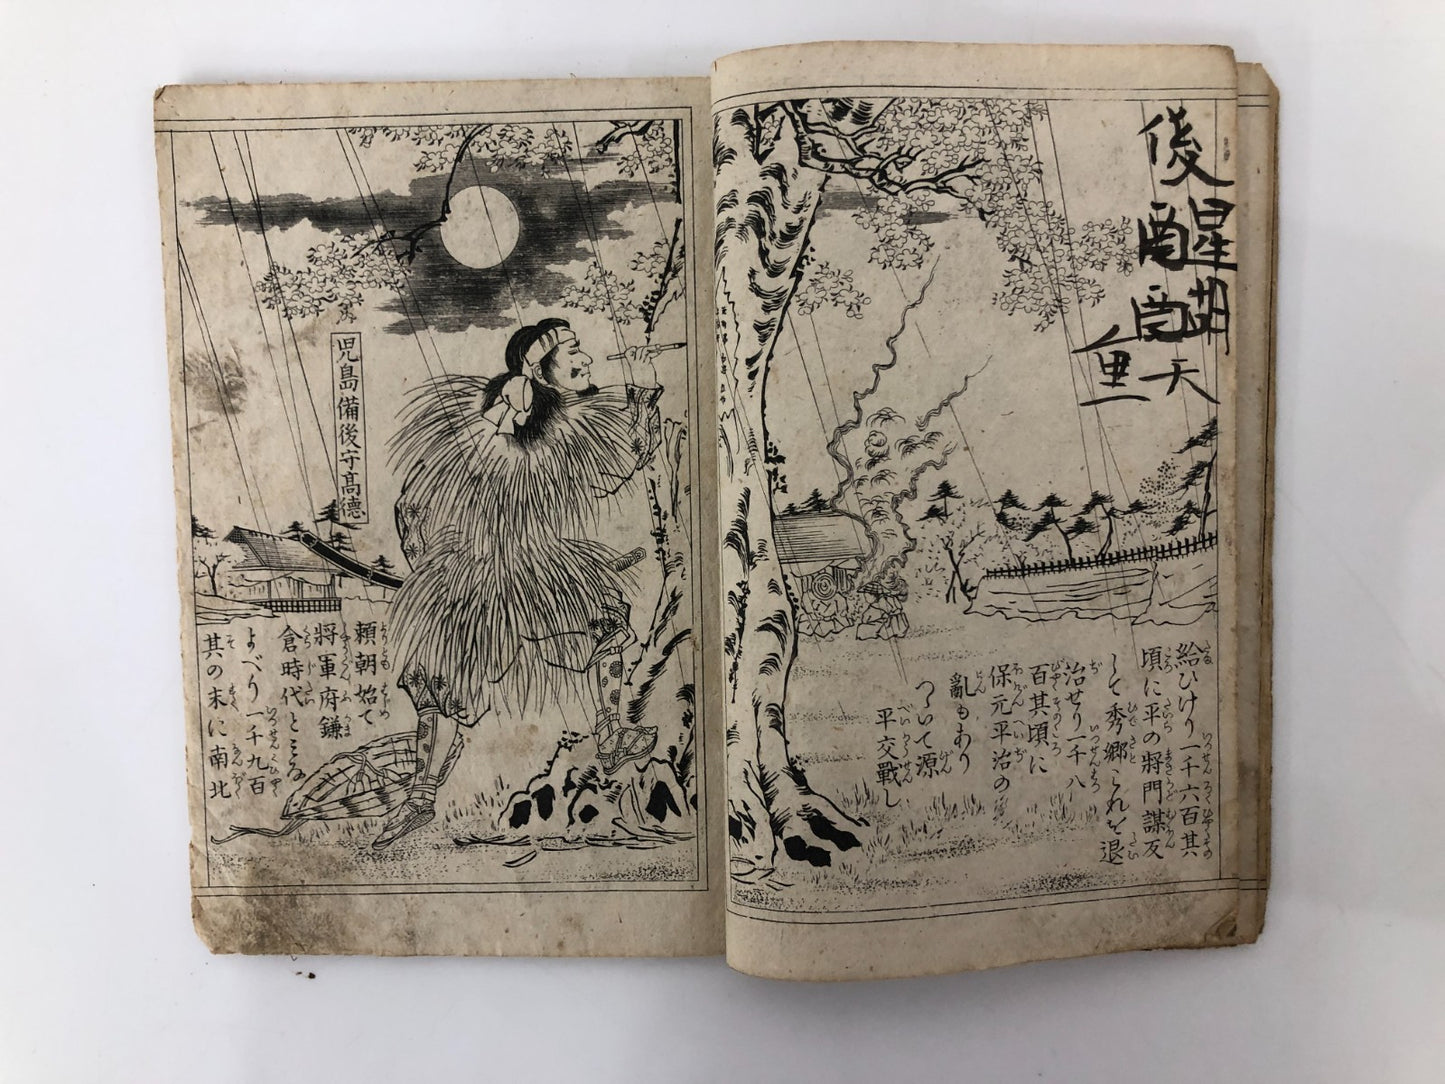 後醍醐天
皇
給ひけり一千六百其
頃に平の將門謀反
して秀郷これを退
治せり一千八
百其頃に
保元平治の
亂もあり
つゞいて源
平交戰し
児島備後守高德
頼朝始て
將軍府鎌
倉時代ととなゆ
よべり一千九百
其の末に南北